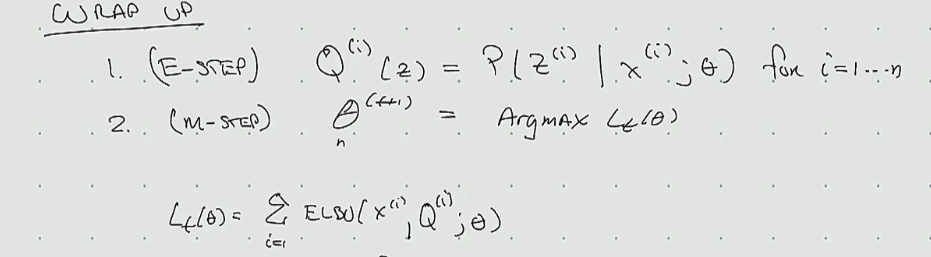 WRAP UP
1. (E-STEP) Q^(i)(z) = P(z^(i) | x^(i); θ) for i=1...n
2. (M-STEP) θ^(t+1) = Argmax L_t(θ)
L_t(θ) = Σ_{i=1}^{n} ELBO(x^(i), Q^(i); θ)